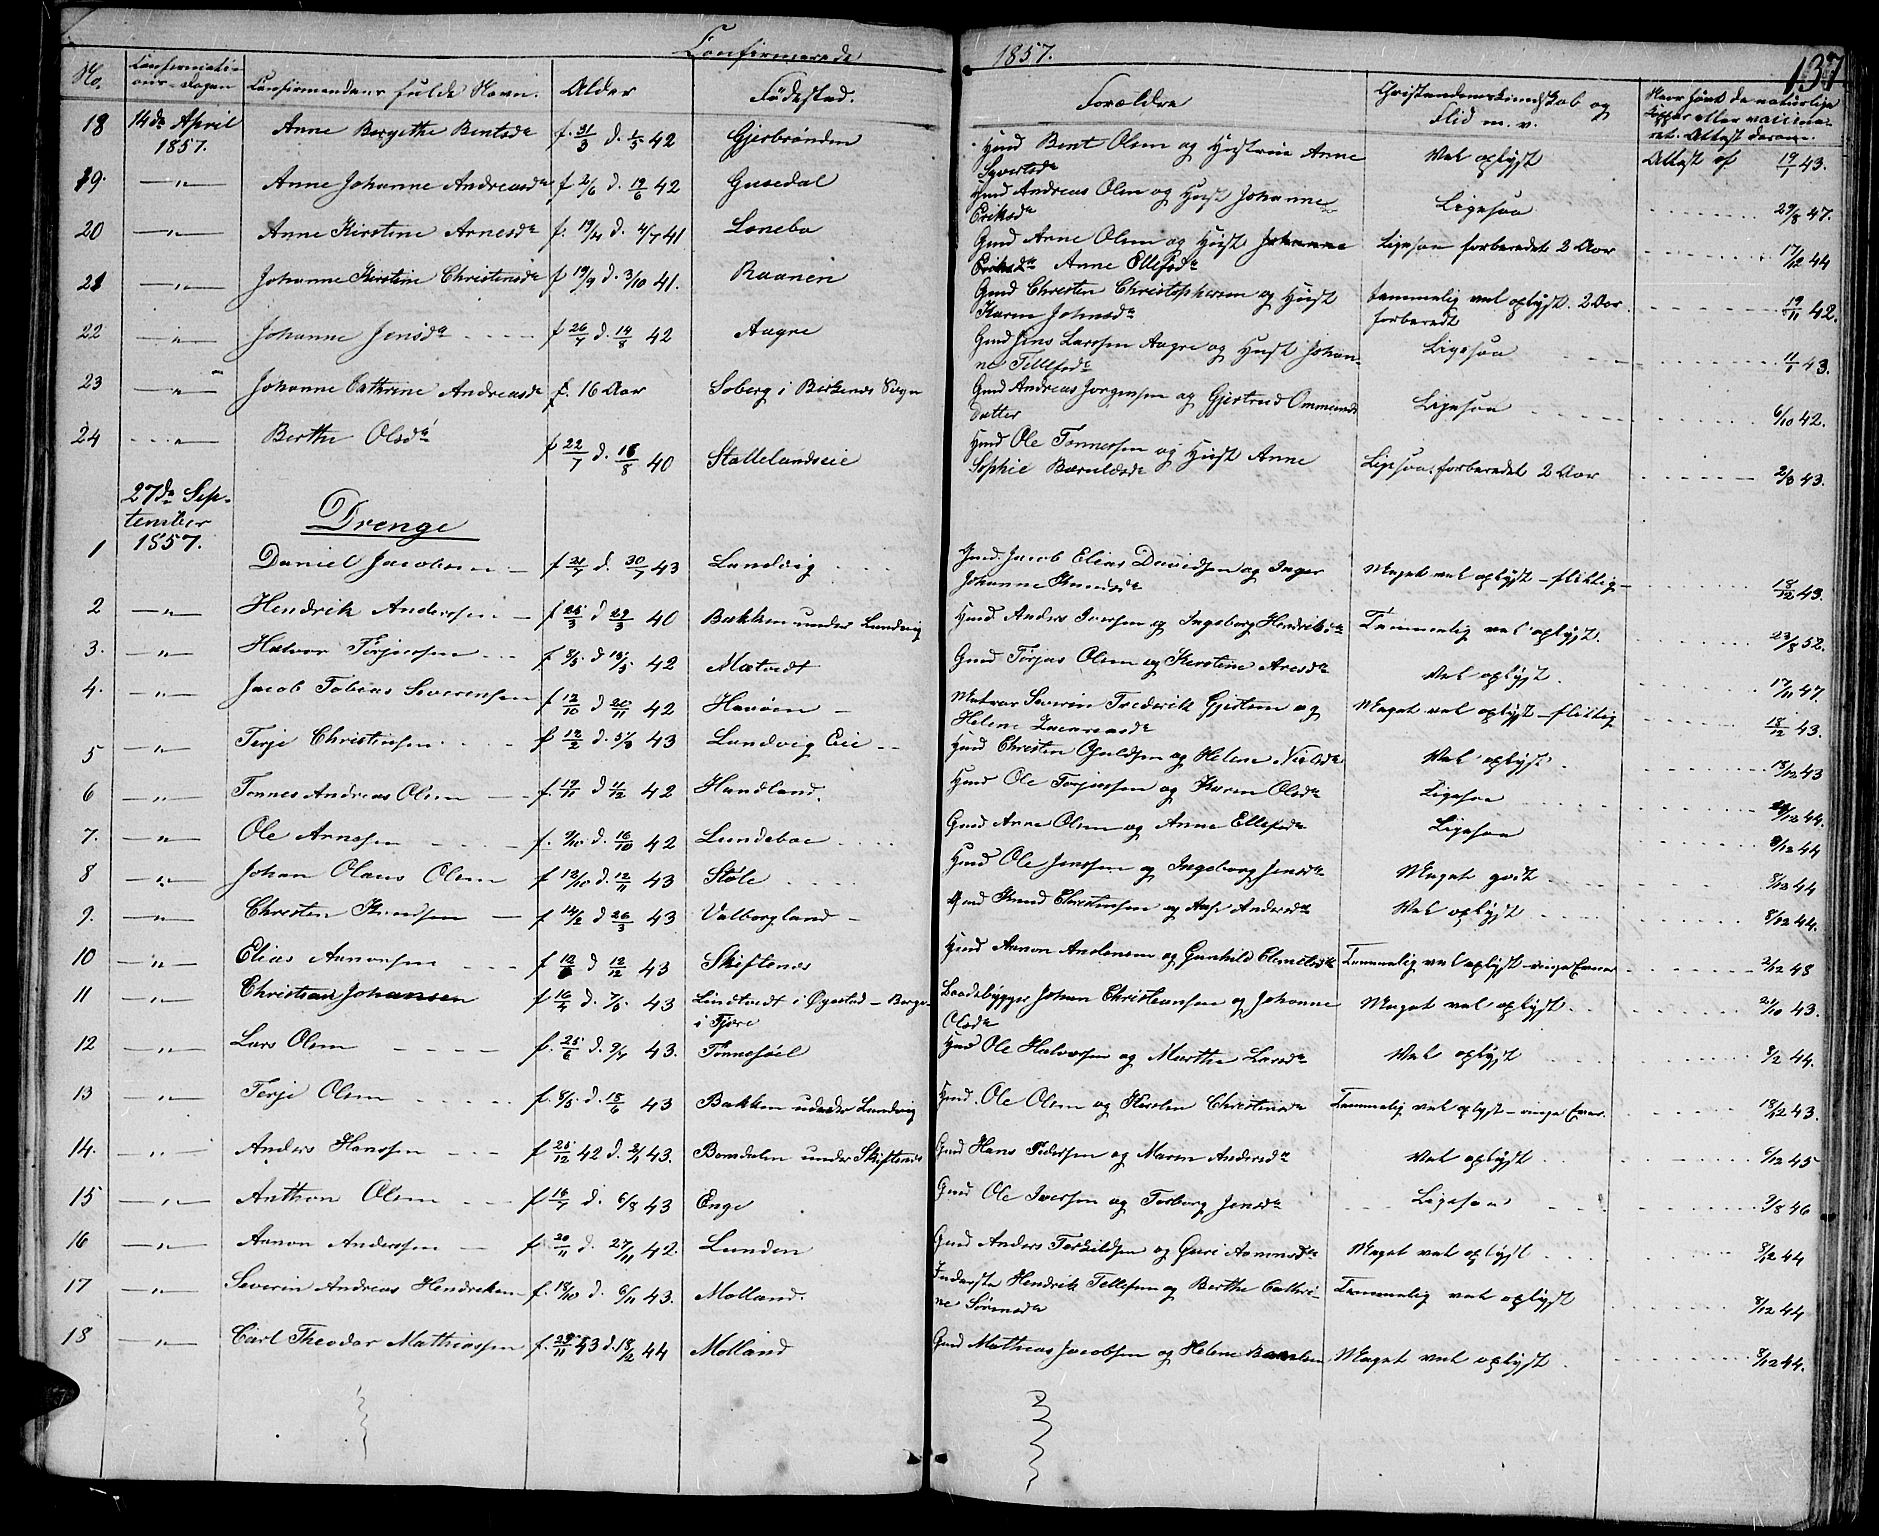 Confirmerede 1857. 137
No. Confirmati-ons-Dagen Confirmandens fulde Navn. Alder Fødested. Forældre Christendomskundskab og Flid m. v. Naar havt de naturlige Kopper eller vaccineret. Attest derom.
18 14de April 1857. Anne Bergithe Bentsdr f. 31/3 d. 1/5 42 Gjerbrønden Gmd Bent Olsen og Hustrue Anne Syvertsdr Vel oplyst Attest af 19/7 43.
19. —"— Anne Johanne Andreasdr f 2/6 d. 19/6 42 Gusedal Gmd Andreas Olsen og Hust Johanne Eriksdr Ligesaa 29/8 47.
20 —"— Anne Kirstine Arnesdr f. 19/4 d. 4/7 41 Lonebo Gmd Arne Olsen og Hust Johanne Eriksdr Anne Ellefsdr Ligesaa forberedet 2 Aar 17/12 44
21 —"— Johanne Kirstine Christensdr f 19/9 d. 3/10 41. Raanen Gmd Christen Christophersen og Hust Karen Johnsdr temmelig vel oplyst. 2 Aar forberedt 19/11 42.
22 —"— Johanne Jensdr f 26/7 d. 14/8 42 Aagre Gmd Jens Larssen Aagre og Hust Johanne Tellefsdr Ligesaa 11/1 43.
23 —"— Johanne Cathrine Andreasdr f. 16 Aar Soberg i Birkenes Sogn Gmd Andreas Jorgensen og Gjertrud Ommundsdatter Ligesaa 6/10 42.
24 —"— Berthe Olsdr f 22/7 d. 16/8 40 Støllelandseie Hmd Ole Tønnessen og Hust Anne Sophie Ligesaa. forberedet 2 Aar 2/8 43.
27de September 1857. Drenge
1 Daniel Jacobsen f 21/7 d. 30/7 43 Landvig Gmd. Jacob Elias Davidsen og Inger Johanne Knudsdr Meget vel oplyst – flittig – 18/12 43.
2 —"— Hendrik Anderssen f 25/3 d 29/3 40 Bakken under Landvig Hmd Anders Iversen og Ingeborg Hendriksdr Temmelig vel oplyst. 23/8 52.
3. —"— Halvor Terjessen f 8/5 d 15/5 42 Mætvedt Gmd Terjus Olsen og Kirstine Aresdr Vel oplyst. 17/11 47.
4. —"— Jacob Tobias Severensen f 12/10 d 20/11 42 Havøen Matros Severin Frederik Gjertsen og Helene Meget vel oplyst – flittig 18/12 43.
5 —"— Terje Christensen f 12/2 d. 5/3 43 Landvig Eie Hmd Christen Gjuldsen og Helene Nielsdr Vel oplyst 18/12 43
6 —"— Tønnes Andreas Olsen f. 19/11 d 1/12 42 Handland. Hmd Ole Terjussen og Karen Olsdr Ligesaa 44.
7. —"— Ole Arnesen f. 9/10 d. 16/10 42 Lundeboe Gmd Arne Olsen og Anne Ellefsdr Ligesaa 8/12 44
8 —"— Johan Olaus Olsen f 12/10 d. 12/11 43 Støle Hmd Ole Jenssen og Ingeborg Jensdr Meget godt 8/12 44
9. —"— Christen Knudsen f 14/2 d 26/3 43 Valborgland Gmd Knud Christensen og Aase Andersdr Vel oplyst 8/12 44.
10 —"— Elias Aanonsen f d 12/12 43 Skiftenes Hmd Aanon Andersen og Gunhild Clemetsdr Temmelig vel oplyst – ringe Evner 2/12 48
11 —"— Christian Johansen f 16/4 d. 7/5 43 Lindtvedt i Øyestad – Berge i Fjære Baadebygger Johan Christiansen og Johanne Olsdr Meget vel oplyst. 21/10 43.
12 —"— Lars Olsen f. 25/6 d. 9/7 43. Tønnesøel Hmd Ole Halvorsen og Marthe Larsdr Vel oplyst 8/2 44.
13 —"— Terje Olsen f. 8/5. d. 18/6 43 Bakken under Landvig Hmd. Ole Olsen og Kirsten Christensdr Temmelig vel oplyst – ringe Evner. 18/12 43.
14. —"— Anders Hanssen f 25/12 42 d. 2/1 43. Bomdalen under Skiftenes Gmd Hans Pederssen og Maren Andersdr Vel oplyst 6/12 45
15 —"— Anthon Olsen f 14/7 d. 6/8 43 Enge Gmd Ole Iversen og Torborg Jensdr Ligesaa 9/8 46
16 —"— Aanon Anderssen f 20/11 d. 27/11 42. Lunden Gmd Anders Terkildsen og Guri Aanonsdr Meget vel oplyst 8/12 44
17 —"— Severin Andreas Hendriksen f. 18/10 d. 6/11 43. Molland. Inderste Hendrik Tellefsen og Berthe Cathrine Sørensdr Temmelig vel oplyst 8/12 44
18 —"— Carl Theodor Mathiassen f. 29/11 43 d. 18/2 44 Molland Gmd Mathias Jacobsen og Helene Meget vel oplyst. 8/12 44.